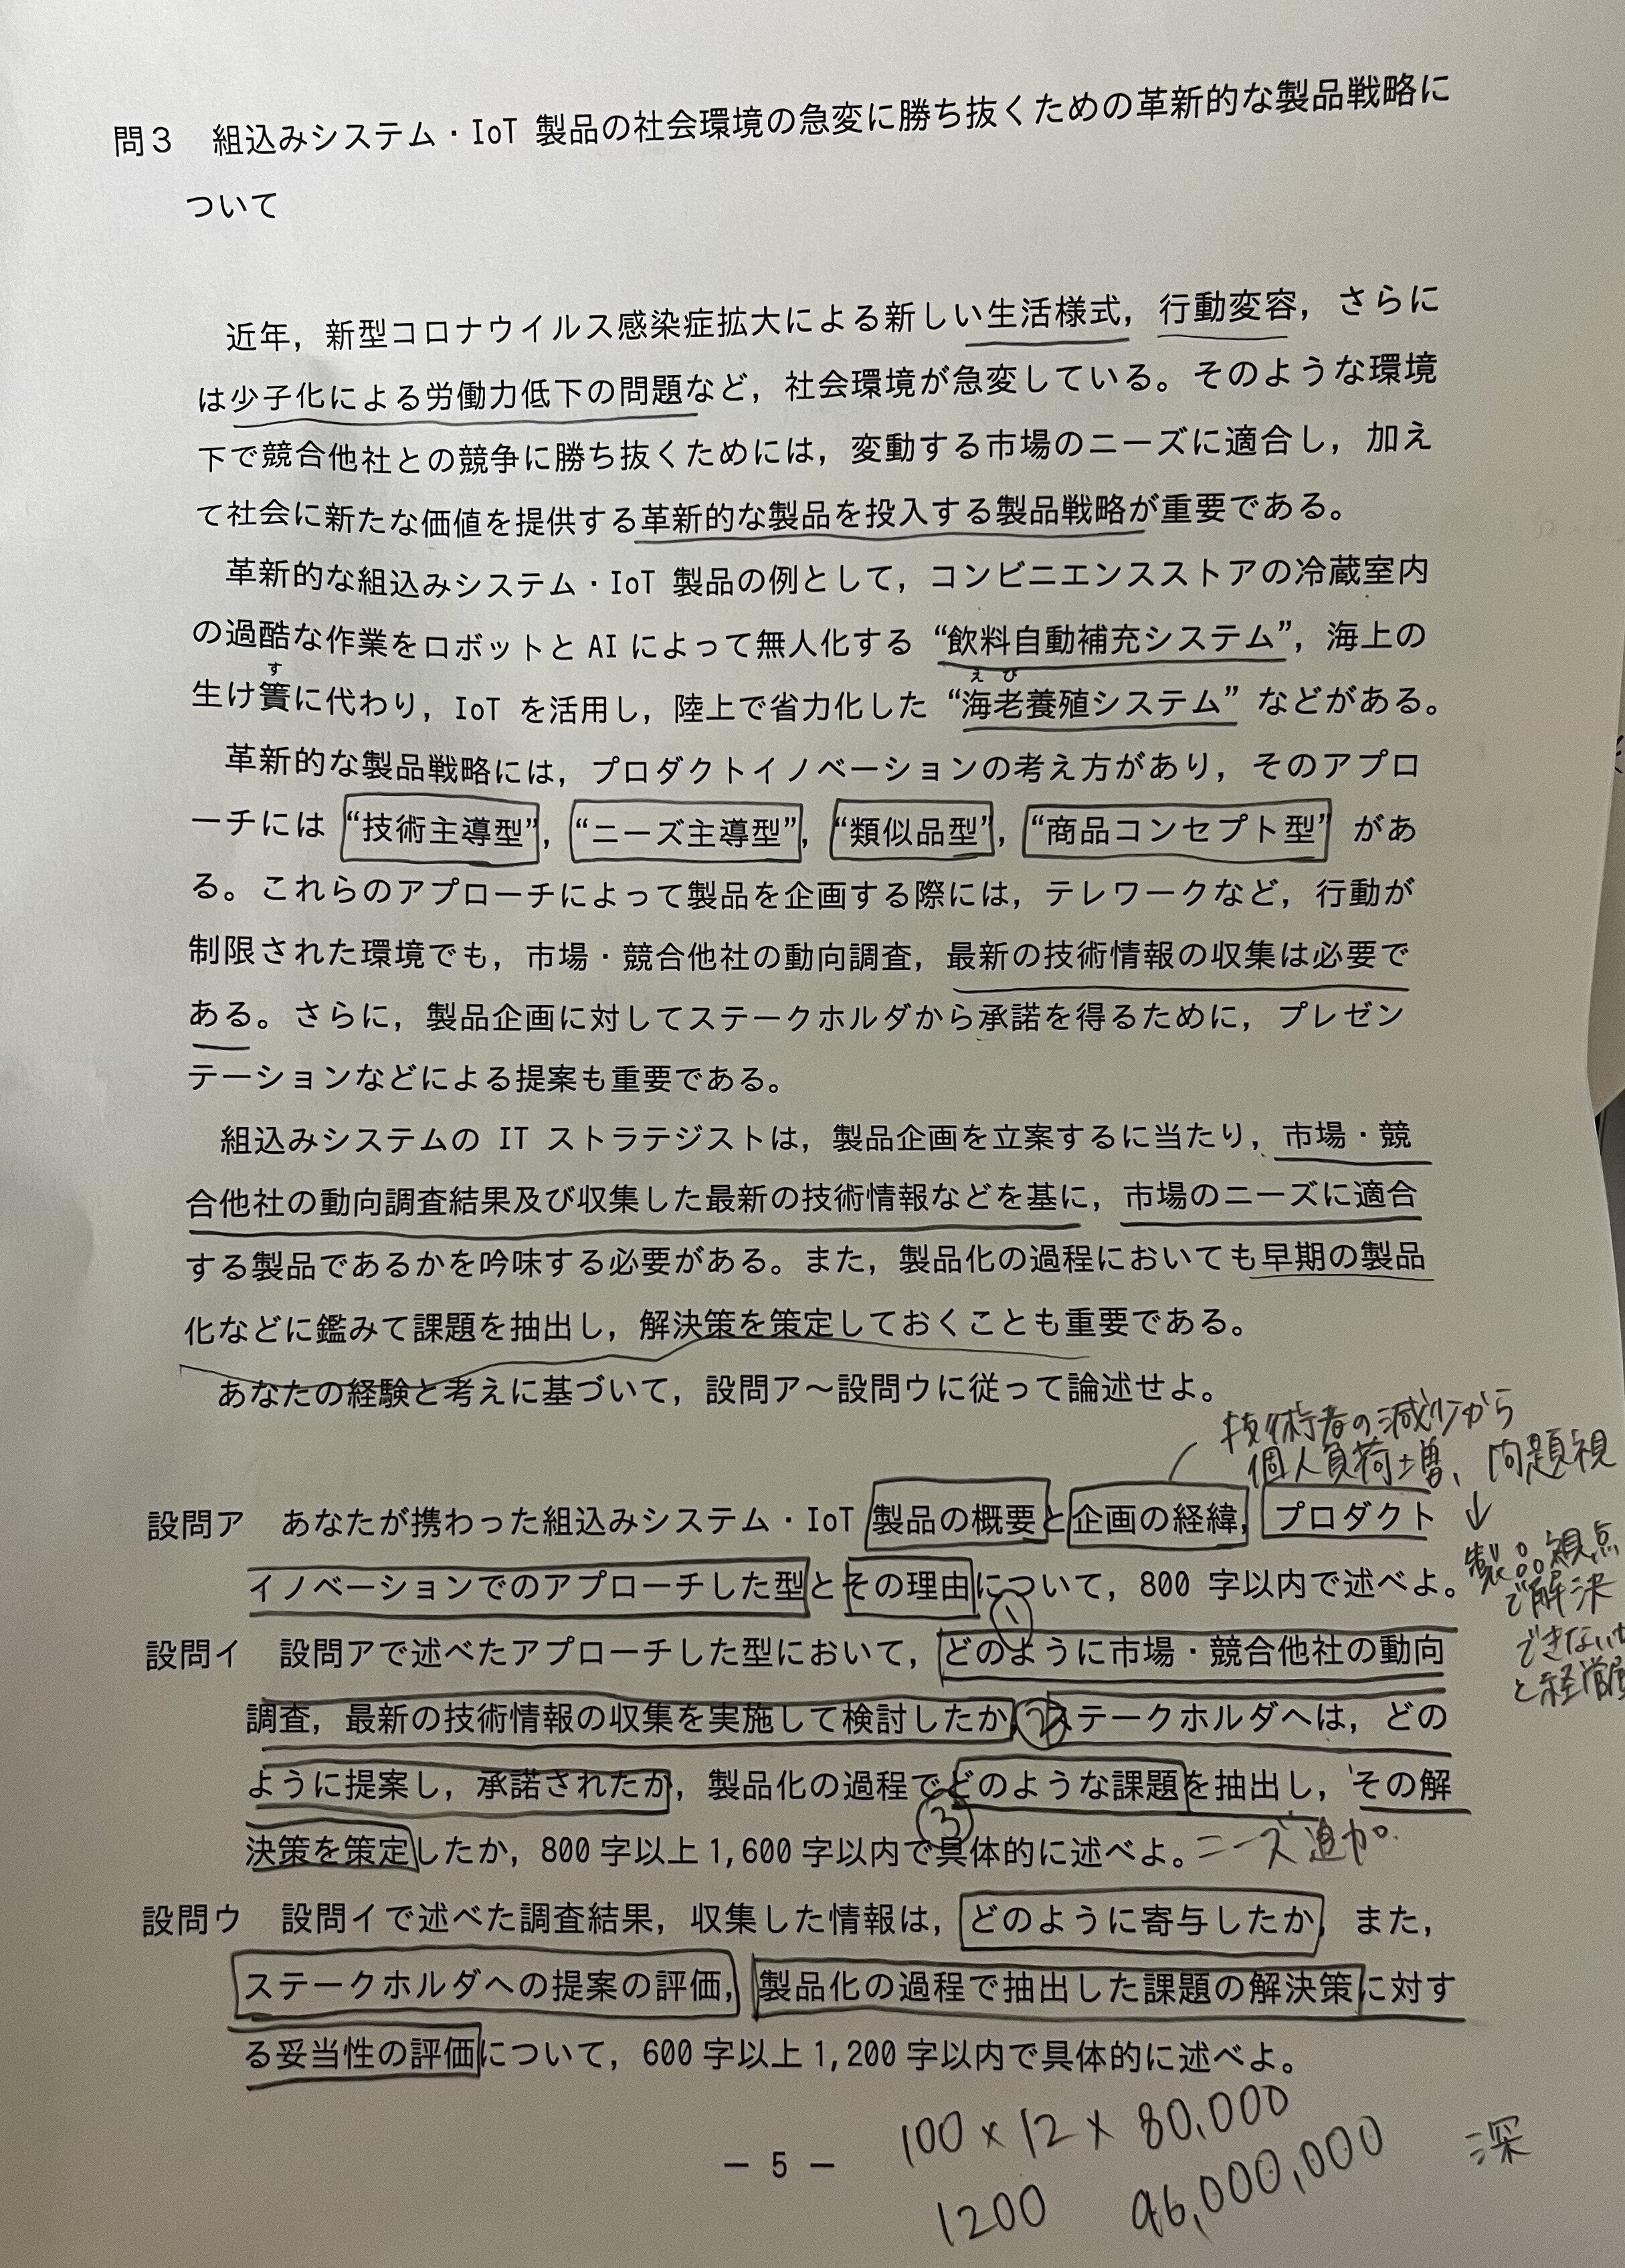 問３　組込みシステム・IoT 製品の社会環境の急変に勝ち抜くための革新的な製品戦略に
ついて
近年，新型コロナウイルス感染症拡大による新しい生活様式，行動変容，さらに
は少子化による労働力低下の問題など，社会環境が急変している。そのような環境
下で競合他社との競争に勝ち抜くためには，変動する市場のニーズに適合し，加え
て社会に新たな価値を提供する革新的な製品を投入する製品戦略が重要である。
革新的な組込みシステム・IoT 製品の例として，コンビニエンスストアの冷蔵室内
の過酷な作業をロボットと AI によって無人化する “飲料自動補充システム”，海上の
す
えび
生け簀に代わり，IoT を活用し，陸上で省力化した “海老養殖システム” などがある。
革新的な製品戦略には，プロダクトイノベーションの考え方があり，そのアプロ
ーチには “技術主導型”，“ニーズ主導型”，“類似品型”，“商品コンセプト型” があ
る。これらのアプローチによって製品を企画する際には，テレワークなど，行動が
制限された環境でも，市場・競合他社の動向調査，最新の技術情報の収集は必要で
ある。さらに，製品企画に対してステークホルダから承諾を得るために，プレゼン
テーションなどによる提案も重要である。
組込みシステムの IT ストラテジストは，製品企画を立案するに当たり，市場・競
合他社の動向調査結果及び収集した最新の技術情報などを基に，市場のニーズに適合
する製品であるかを吟味する必要がある。また，製品化の過程においても早期の製品
化などに鑑みて課題を抽出し，解決策を策定しておくことも重要である。
あなたの経験と考えに基づいて，設問ア～設問ウに従って論述せよ。
技術者の減少から
個人負荷増、問題視
↓
製品視点
で解決
できないか
と経営
設問ア　あなたが携わった組込みシステム・IoT 製品の概要と企画の経緯，プロダクト
イノベーションでのアプローチした型とその理由について，800 字以内で述べよ。
①
設問イ　設問アで述べたアプローチした型において，どのように市場・競合他社の動向
調査，最新の技術情報の収集を実施して検討したか，ステークホルダへは，どの
②
ように提案し，承諾されたか，製品化の過程でどのような課題を抽出し，その解
③
決策を策定したか，800 字以上 1,600 字以内で具体的に述べよ。ニーズ追加。
設問ウ　設問イで述べた調査結果，収集した情報は，どのように寄与したか，また，
ステークホルダへの提案の評価，製品化の過程で抽出した課題の解決策に対す
る妥当性の評価について，600 字以上 1,200 字以内で具体的に述べよ。
100 × 12 × 80,000
－ 5 －
深
1200　96,000,000